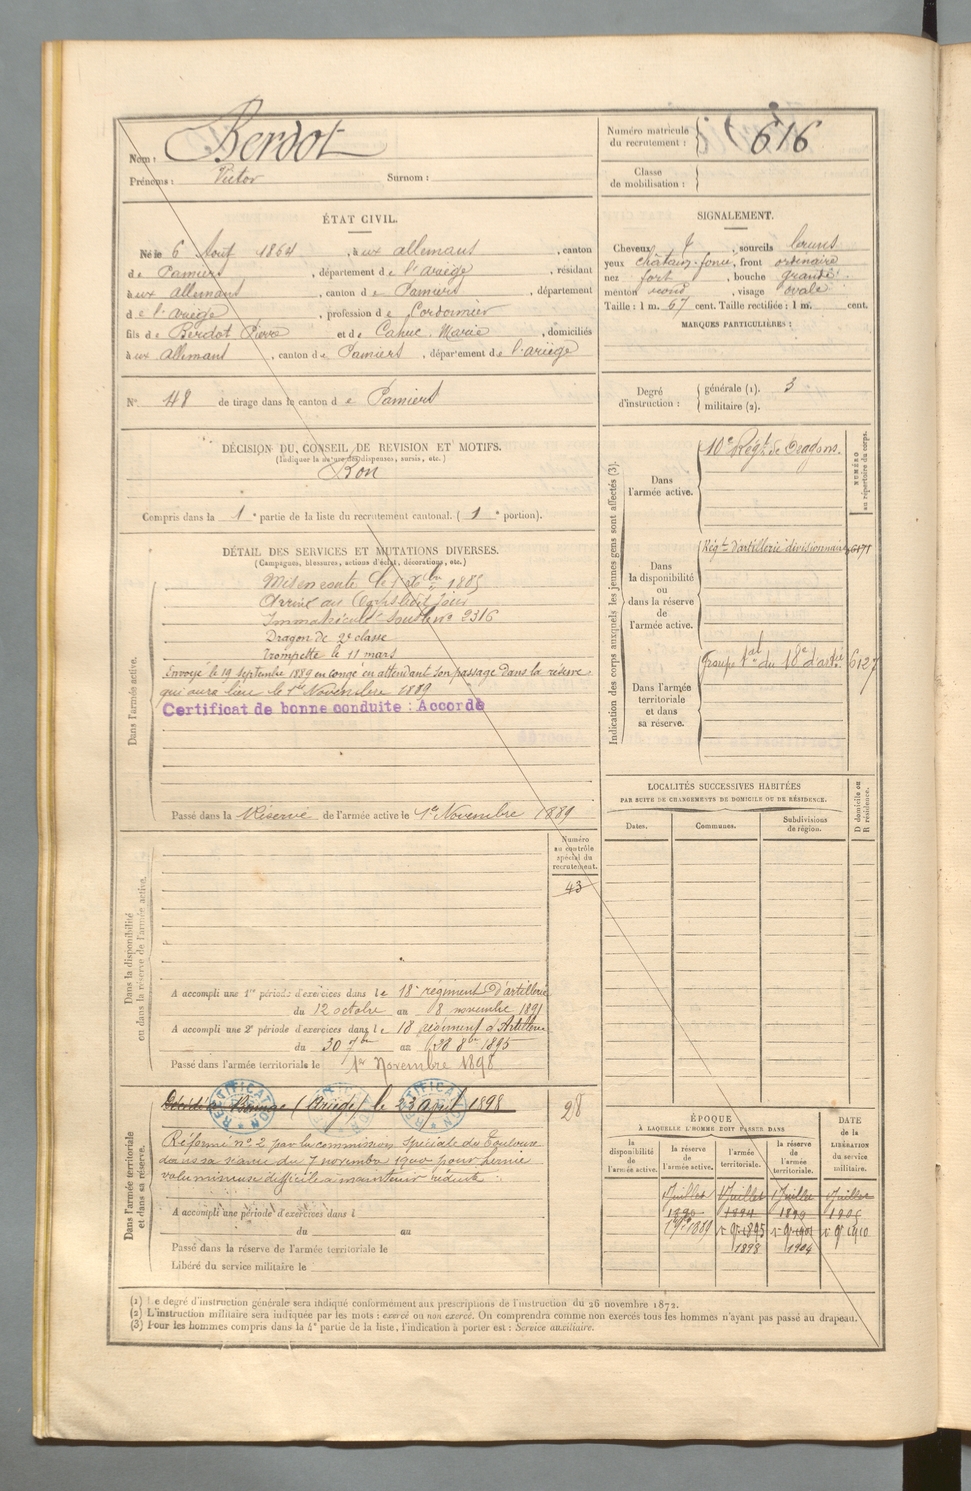 Nom : Berdot
Prénoms : Victor Surnom :
Numéro matricule du recrutement : 616
Classe de mobilisation :
ÉTAT CIVIL.
Né le 6 Aout 1864, à ux allemans, canton
de Pamiers, département de l'ariège, résidant
à ux allemans, canton de Pamiers, département
de l'ariège, profession de Cordonnier
fils de Berdot Pierre et de Cahuc Marie, domiciliés
à ux allemans, canton de Pamiers, département de l'ariège
SIGNALEMENT.
Cheveux, sourcils bruns
yeux châtain-foncé, front ordinaire
nez fort, bouche grande
menton rond, visage ovale
Taille : 1 m. 67 cent. Taille rectifiée : 1 m. cent.
MARQUES PARTICULIÈRES :
N° 48 de tirage dans le canton de Pamiers
Degré d'instruction : générale (1). 3
militaire (2).
DÉCISION DU CONSEIL DE REVISION ET MOTIFS.
(Indiquer la nature des dispenses, sursis, etc.)
Bon
Compris dans la 1e partie de la liste du recrutement cantonal. (1e portion).
DÉTAIL DES SERVICES ET MUTATIONS DIVERSES.
(Campagnes, blessures, actions d'éclat, décorations, etc.)
Dans l'armée active.
Mis en route le 1 Xbre 1885
Arrivé au Corps ledit jour
Immatriculé sous le n° 2316
Dragon de 2e classe
Trompette le 11 mars
Envoyé le 19 septembre 1889 en congé en attendant son passage dans la réserve
qui aura lieu le 1er Novembre 1889
Certificat de bonne conduite : Accordé
Passé dans la Réserve de l'armée active le 1er Novembre 1889
Indication des corps auxquels les jeunes gens sont affectés (3).
NUMÉRO au répertoire du corps.
Dans l'armée active.
10e Régt de Dragons.
Dans la disponibilité ou dans la réserve de l'armée active.
Régt d'artillerie divisionnaire 6171
Dans l'armée territoriale et dans sa réserve.
Groupe tal du 18e d'artie 6127
LOCALITÉS SUCCESSIVES HABITÉES
PAR SUITE DE CHANGEMENTS DE DOMICILE OU DE RÉSIDENCE.
Dates. Communes. Subdivisions de région.
D domicile ou R résidence.
Numéro au contrôle spécial du recrutement.
43
Dans la disponibilité ou dans la réserve de l'armée active.
A accompli une 1re période d'exercices dans le 18e régiment d'artillerie
du 12 octobre au 8 novembre 1891
A accompli une 2e période d'exercices dans le 18 régiment d'Artillerie
du 30 7bre au 28 8bre 1895
Passé dans l'armée territoriale le 1er Novembre 1898
Dans l'armée territoriale et dans sa réserve.
(Ariège) le 23 avril 1898
28
RECTIFICATION
Réformé n° 2 par la commission spéciale de Toulouse
dans sa séance du 7 novembre 1900 pour hernie
volumineuse difficile a maintenir réduite
A accompli une période d'exercices dans l
du au
Passé dans la réserve de l'armée territoriale le
Libéré du service militaire le
ÉPOQUE
À LAQUELLE L'HOMME DOIT PASSER DANS
la disponibilité de l'armée active.
la réserve de l'armée active.
l'armée territoriale.
la réserve de l'armée territoriale.
DATE de la LIBÉRATION du service militaire.
1 Juillet 1 Juillet 1 Juillet 1 Juillet
1889 1 9 1895 1 9 1901 1 9 1910
1898 1904
(1) Le degré d'instruction générale sera indiqué conformément aux prescriptions de l'instruction du 26 novembre 1872.
(2) L'instruction militaire sera indiquée par les mots : exercé ou non exercé. On comprendra comme non exercés tous les hommes n'ayant pas passé au drapeau.
(3) Pour les hommes compris dans la 4e partie de la liste, l'indication à porter est : Service auxiliaire.